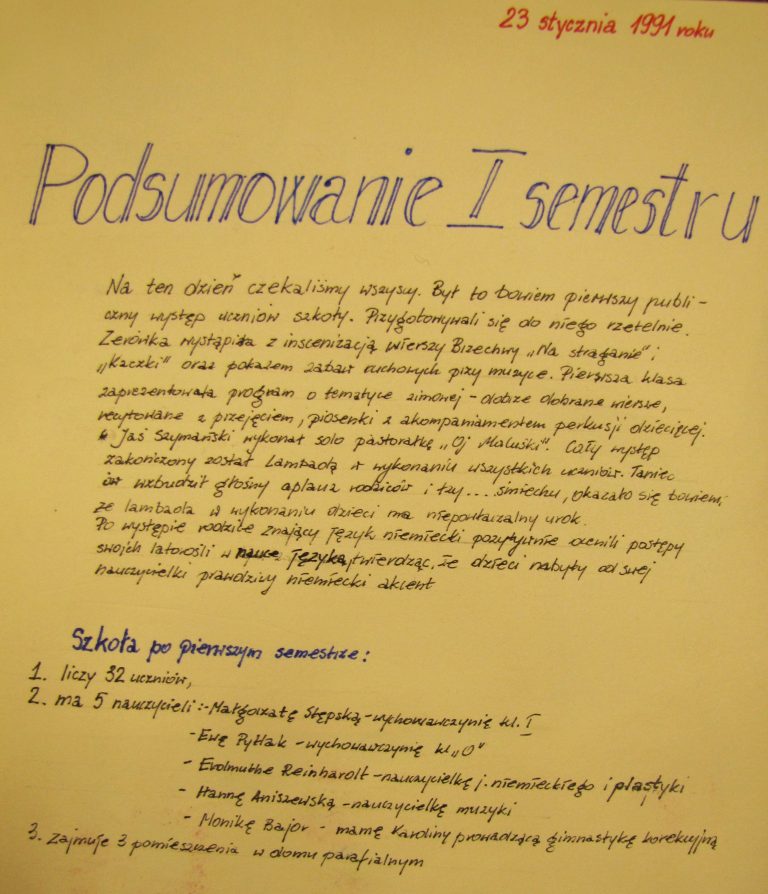 23 stycznia 1991 roku
Podsumowanie I semestru
Na ten dzień czekaliśmy wszyscy. Był to bowiem pierwszy publi-
czny występ uczniów szkoły. Przygotowywali się do niego rzetelnie.
Zerówka wystąpiła z inscenizacją wierszy Brzechwy „Na straganie" i
„Kaczki" oraz pokazem zabaw ruchowych przy muzyce. Pierwsza klasa
zaprezentowała program o tematyce zimowej - dobrze dobrane wiersze,
recytowane z przejęciem, piosenki z akompaniamentem perkusji dziecięcej.
Jaś Szymański wykonał solo pastorałkę „Oj Maluśki". Cały występ
zakończony został Lambadą w wykonaniu wszystkich uczniów. Taniec
ów wzbudził głośny aplauz rodziców i łzy... śmiechu, okazało się bowiem,
że lambada w wykonaniu dzieci ma niepowtarzalny urok.
Po występie rodzice znający język niemiecki pozytywnie ocenili postępy
swoich latorośli w nauce języka, twierdząc, że dzieci nabyły od swej
nauczycielki prawdziwy niemiecki akcent
Szkoła po pierwszym semestrze:
1. liczy 32 uczniów,
2. ma 5 nauczycieli:- Małgorzatę Stępską - wychowawczynię kl. I
- Ewę Pytlak - wychowawczynię kl „0"
- Erdmuthe Reinhardt - nauczycielkę j. niemieckiego i plastyki
- Hannę Aniszewską - nauczycielkę muzyki
- Monikę Bajor - mamę Karoliny prowadzącą gimnastykę korekcyjną
3. zajmuje 3 pomieszczenia w domu parafialnym